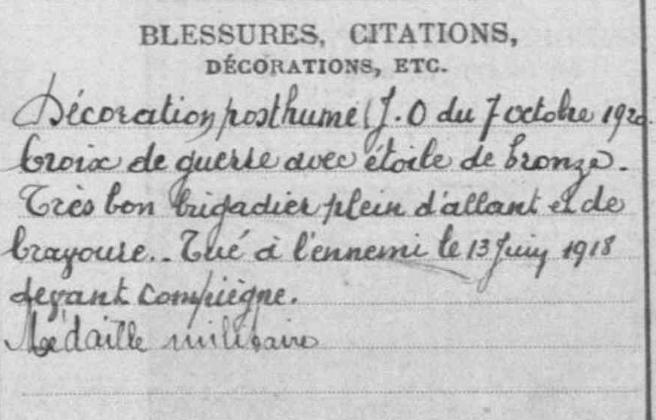 BLESSURES, CITATIONS,
DÉCORATIONS, ETC.
Décoration posthume (J.O du 7 octobre 1920.
Croix de guerre avec étoile de bronze.
Très bon brigadier plein d'allant et de
bravoure.. Tué à l'ennemi le 13 Juin 1918
devant Compiègne.
Médaille militaire